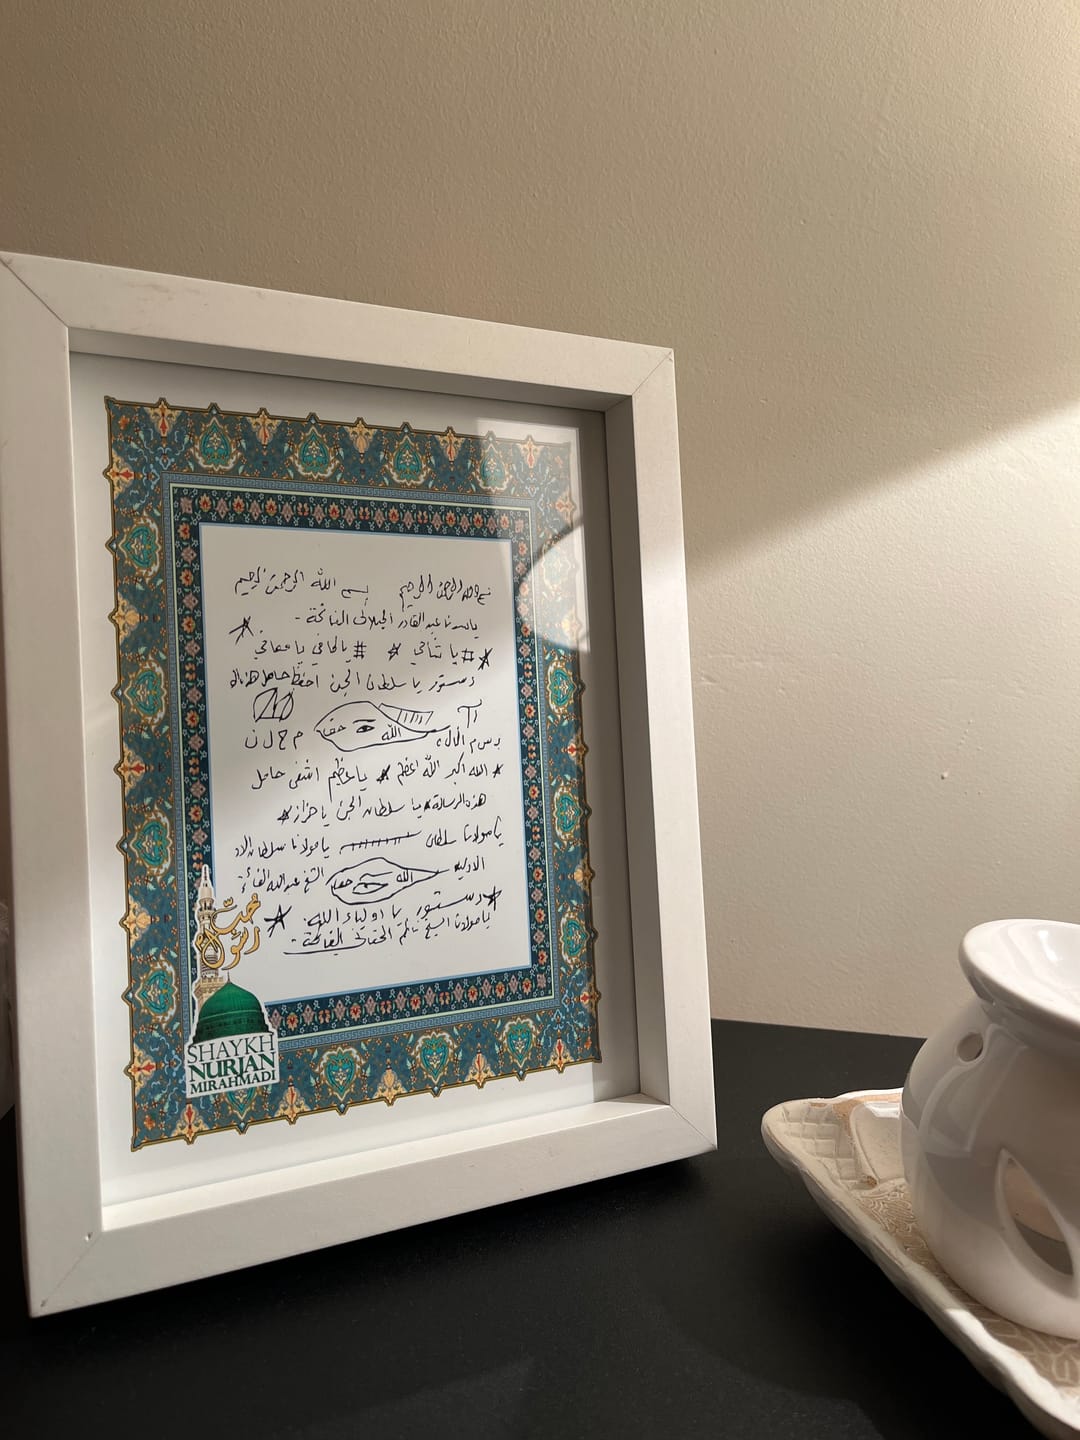 بسم الله الرحمن الرحيم بسم الله الرحمن الرحيم
يا سيدنا عبد القادر الجيلاني الفاتحة -
# يا شافي # يا كافي يا معافي
دستور يا سلطان الجن احفظ حامل هذه
الله حق
م ح ل ن
الله اكبر الله اعظم يا عظيم اشفي حامل
هذه الرسالة يا سلطان الجن يا حزاز
يا مولانا سلطان يا مولانا سلطان
الاولياء الله حق الشيخ عبد الله الفائز
دستور يا اولياء الله
يا مولانا الشيخ ناظم الحقاني الفاتحة -
محمد رسول
SHAYKH
NURJAN
MIRAHMADI